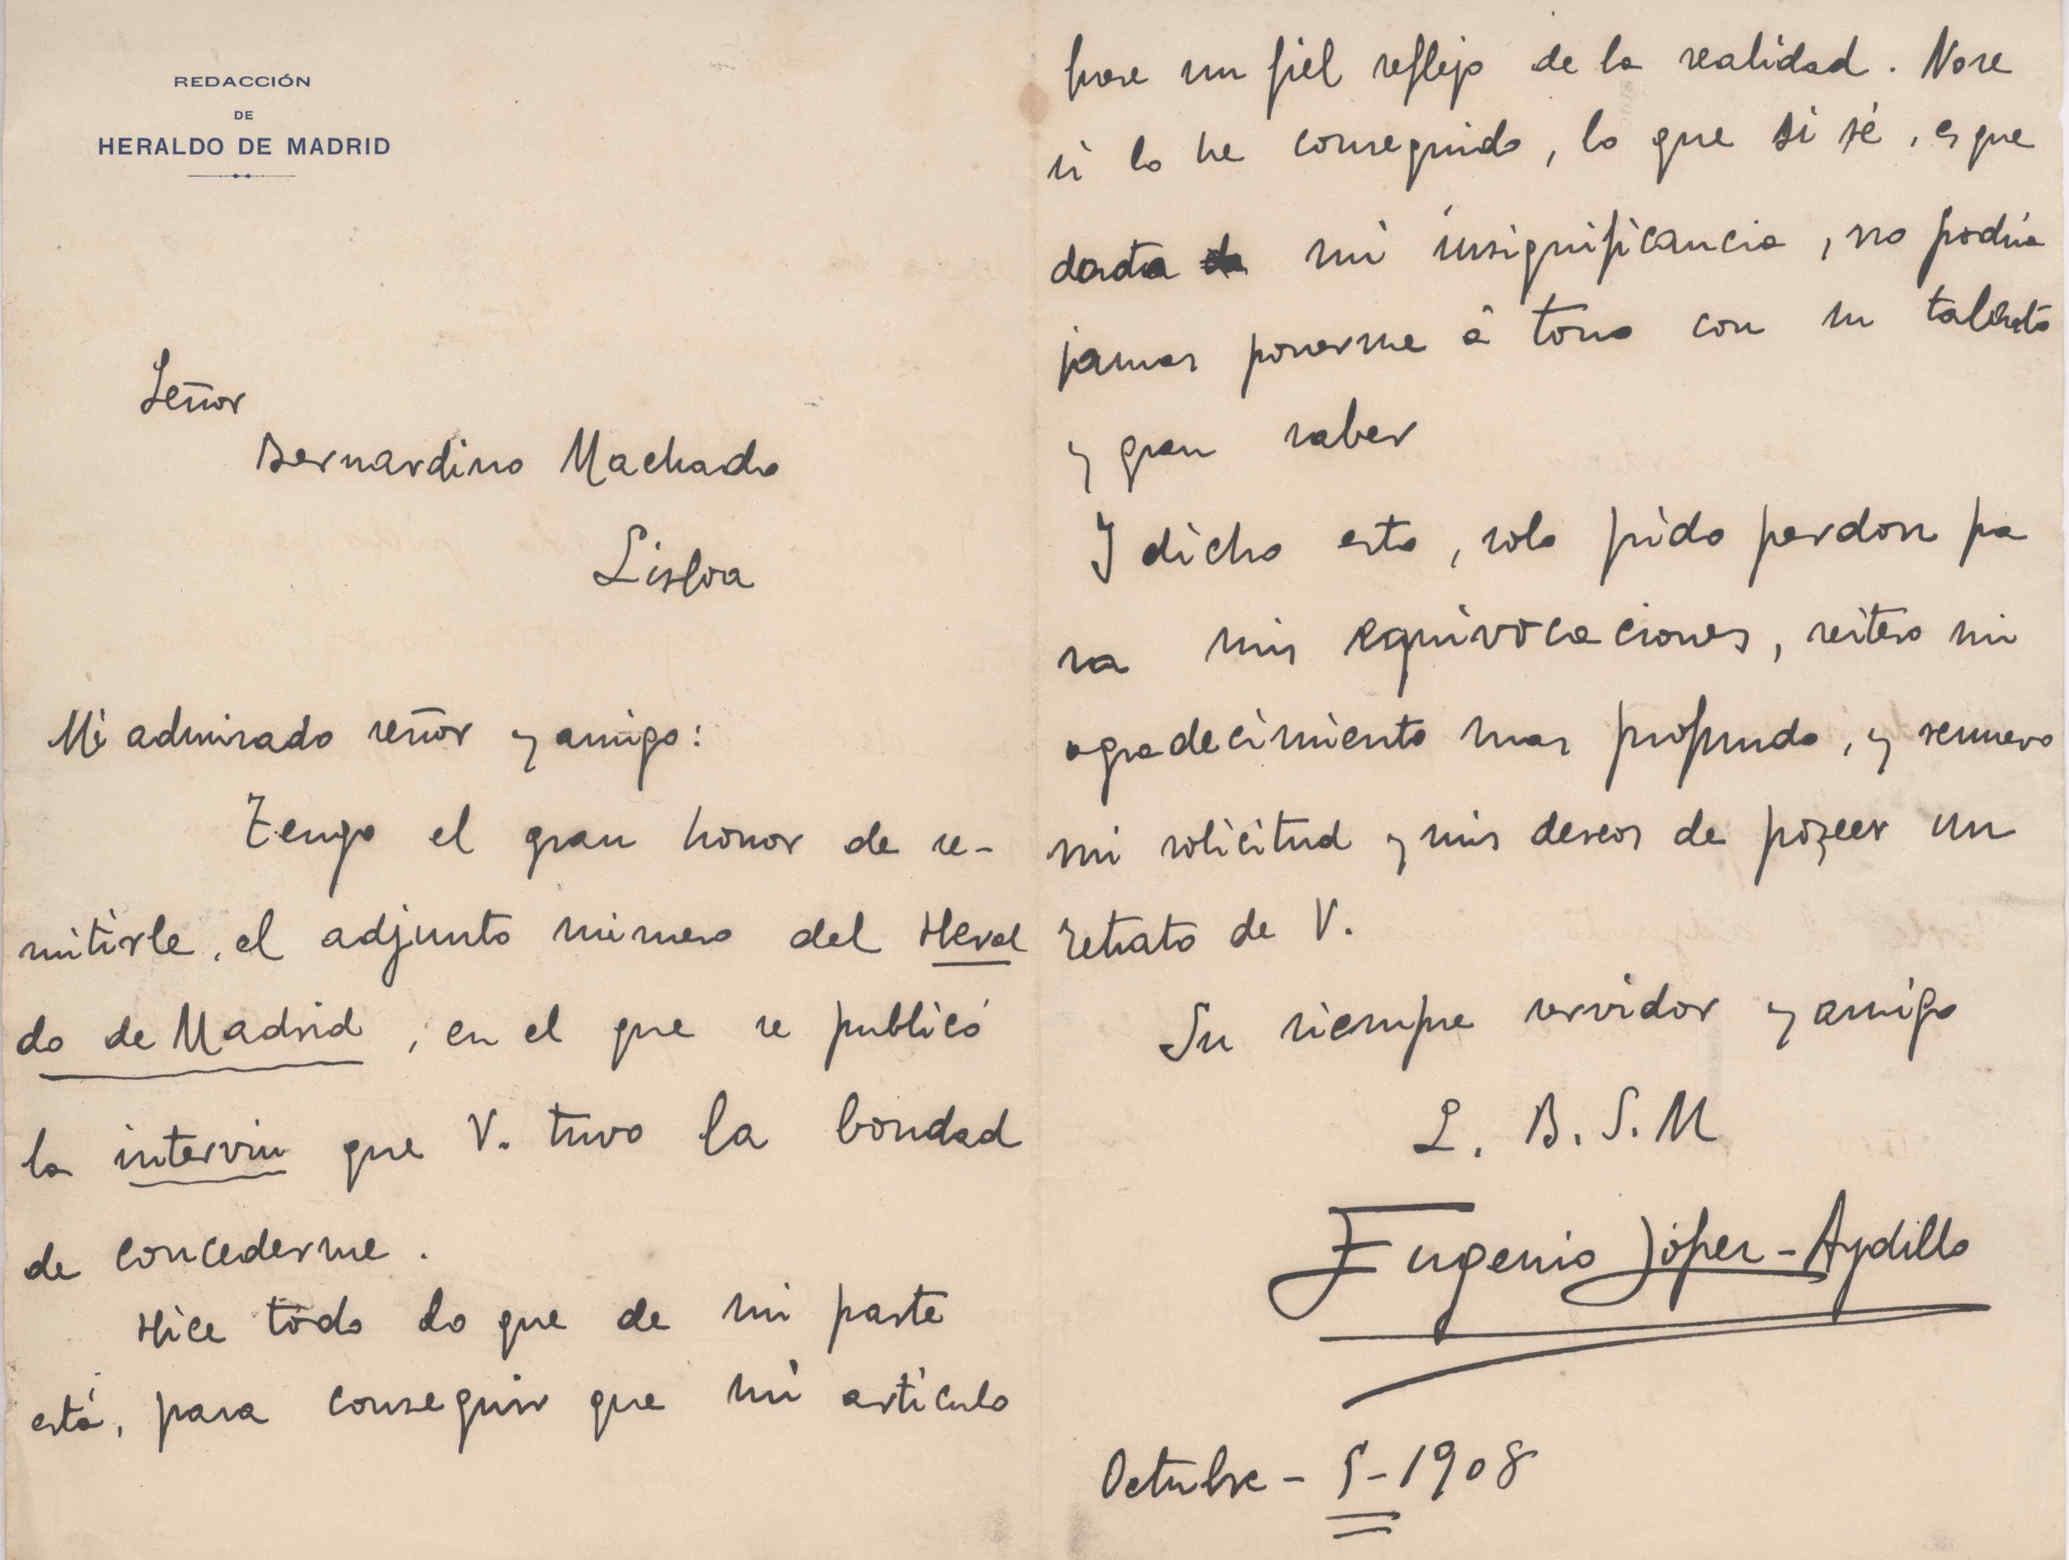 REDACCIÓN
DE
HERALDO DE MADRID
Señor
Bernardino Machado
Lisboa
Mi admirado señor y amigo:
Tengo el gran honor de re-
mitirle, el adjunto número del Heral
do de Madrid, en el que se publicó
la interviu que V. tuvo la bondad
de concederme.
Hice todo lo que de mi parte
está, para conseguir que mi artículo
fuese un fiel reflejo de la realidad. No se
si lo he conseguido, lo que si sé, es que
dada mi insignificancia, no podria
jamas ponerme á tono con su talento
y gran saber
Y dicho esto, solo pido perdon pa
ra mis equivocaciones, reitero mi
agradecimiento mas profundo, y renuevo
mi solicitud y mis deseos de pozeer un
retrato de V.
Su siempre servidor y amigo
L. B. S. M
Eugenio López-Aydillo
Octubre - 5 - 1908